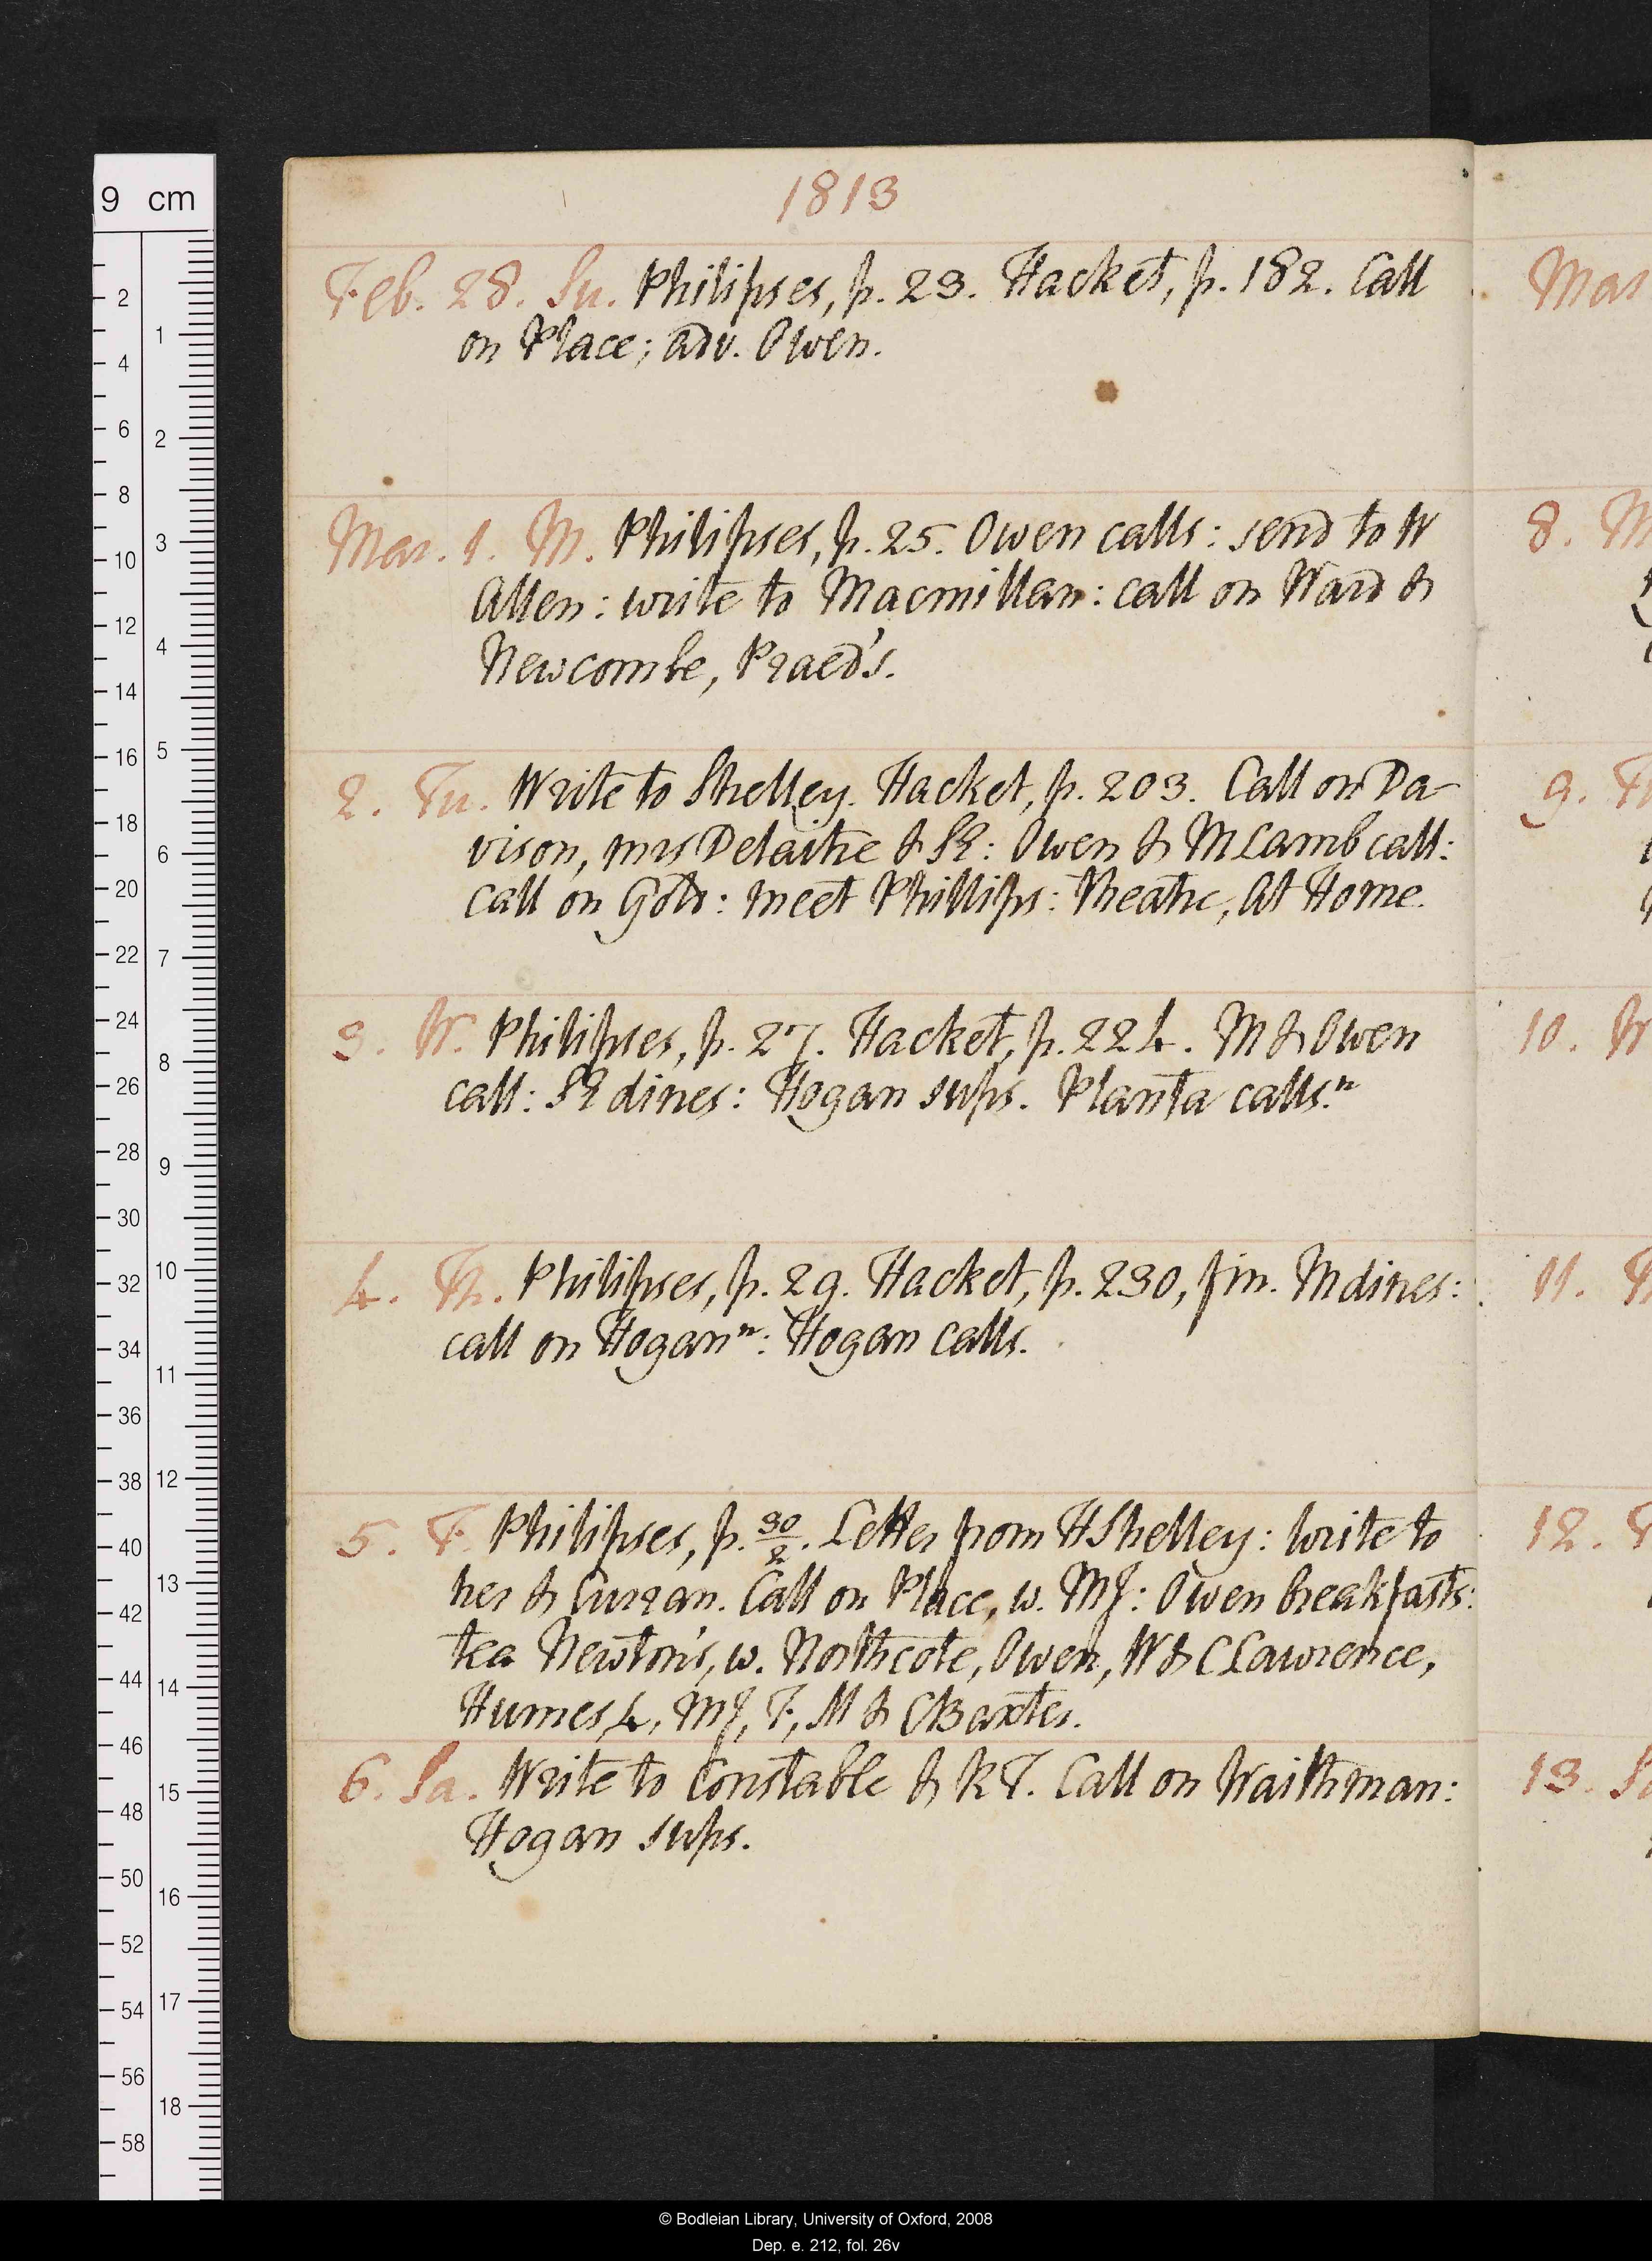 1813
Feb. 28. Su. Philipses, p. 23. Hacket, p. 182. Call
on Place; adv. Owen.
Mar. 1. M. Philipses, p. 25. Owen calls: send to W
Allen: write to Macmillan: call on Ward &
Newcombe, Praed's.
2. Tu. Write to Shelley. Hacket, p. 203. Call on Da-
vison, mrs Delaitre & SR: Owen & M Lamb call:
call on Godr: meet Phillips: Theatre, At Home.
3. W. Philipses, p. 27. Hacket, p. 224. M & Owen
call: SR dines: Hogan sups. Planta calls.n
4. Th. Philipses, p. 29. Hacket, p. 230, fin. M dines:
call on Hogan n: Hogan calls.
5. F. Philipses, p. 30/2. Letter from H Shelley: write to
her & Curran. Call on Place, w. MJ: Owen breakfasts:
tea Newton's, w. Northcote, Owen, W & C Lawrence,
Humes 4, MJ, F, M & C Baxter.
6. Sa. Write to Constable & RT. Call on Waithman:
Hogan sups.
Mar
8. M
9. T
10. W
11. T
12. F
13. Sa
9 cm
2
4
6
8
10
12
14
16
18
20
22
24
26
28
30
32
34
36
38
40
42
44
46
48
50
52
54
56
58
1
2
3
4
5
6
7
8
9
10
11
12
13
14
15
16
17
18
© Bodleian Library, University of Oxford, 2008
Dep. e. 212, fol. 26v